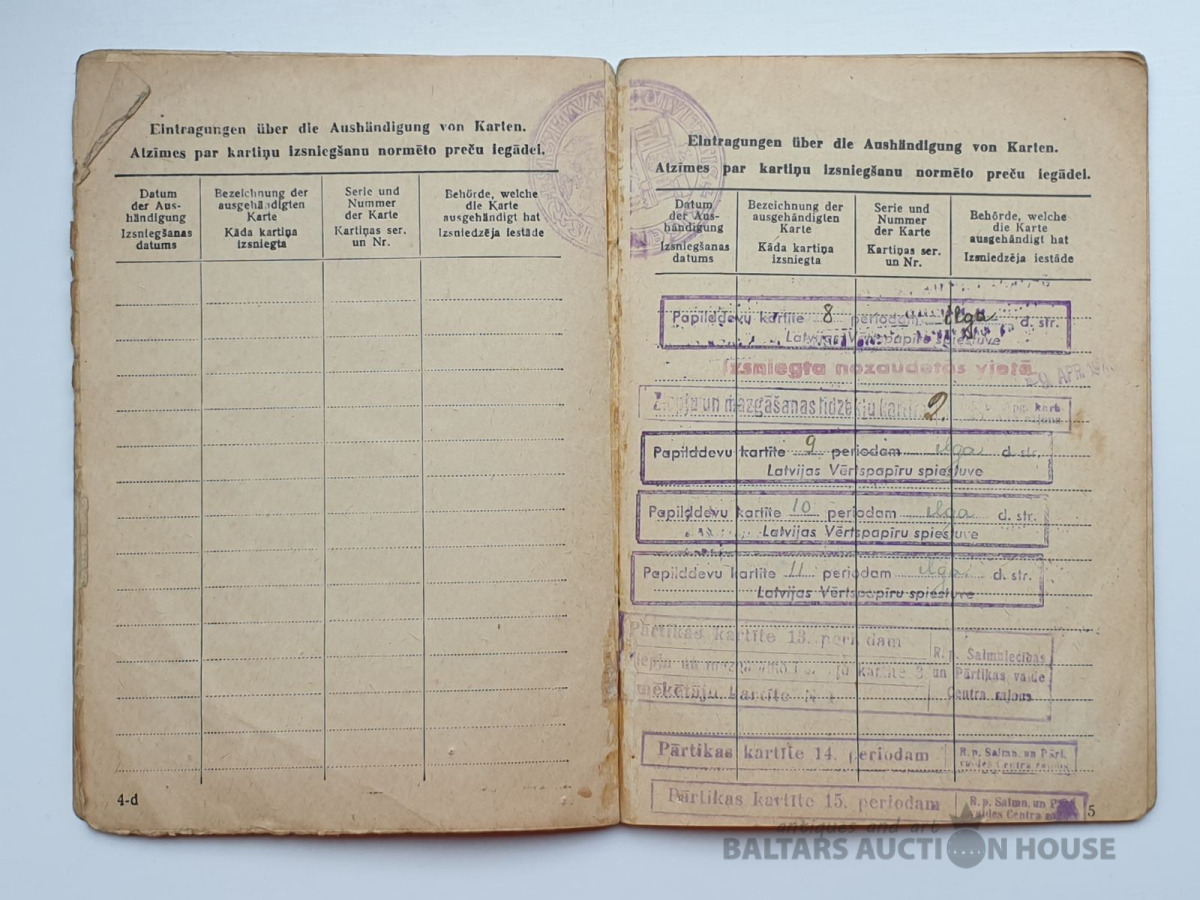 Eintragungen über die Aushändigung von Karten.
Atzīmes par kartiņu izsniegšanu normēto preču iegādei.
Datum
der Aus-
händigung
Izsniegšanas
datums
Bezeichnung der
ausgehändigten
Karte
Kāda kartiņa
izsniegta
Serie und
Nummer
der Karte
Kartiņas ser.
un Nr.
Behörde, welche
die Karte
ausgehändigt hat
Izsniedzēja iestāde
4-d
Eintragungen über die Aushändigung von Karten.
Atzīmes par kartiņu izsniegšanu normēto preču iegādei.
Datum
der Aus-
händigung
Izsniegšanas
datums
Bezeichnung der
ausgehändigten
Karte
Kāda kartiņa
izsniegta
Serie und
Nummer
der Karte
Kartiņas ser.
un Nr.
Behörde, welche
die Karte
ausgehändigt hat
Izsniedzēja iestāde
Papilddevu kartīte 8 periodam ilga d. str.
Latvijas Vērtspapīru spiestuve
Izsniegta nozaudētās vietā
APR.
Ziepju un mazgāšanas līdzekļu 2.
Papilddevu kartīte 9 periodam ilga d. str.
Latvijas Vērtspapīru spiestuve
Papilddevu kartīte 10 periodam ilga d. str.
Latvijas Vērtspapīru spiestuve
Papilddevu kartīte 11 periodam ilga d. str.
Latvijas Vērtspapīru spiestuve
Pārtikas kartīte 13. periodam
un kartīte 3
kartīte
R. p. Saimniecības
un Pārtikas valde
Centra rajons
Pārtikas kartīte 14. periodam
R. p. Saimn. un Pārt.
valdes Centra rajons
Pārtikas kartīte 15. periodam
R. p. Saimn. un
valdes Centra
5
antiques and art
BALTARS AUCTION HOUSE